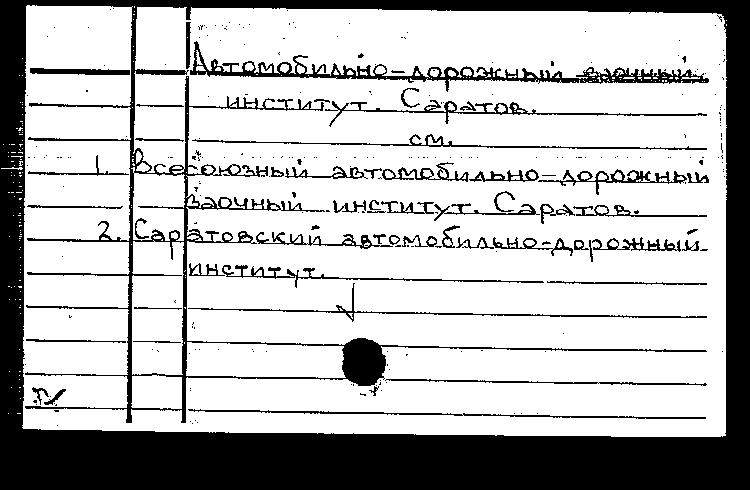 Автомобильно-дорожный заочный
институт. Саратов.
см.
1. Всесоюзный автомобильно-дорожный
заочный институт. Саратов.
2. Саратовский автомобильно-дорожный
институт.